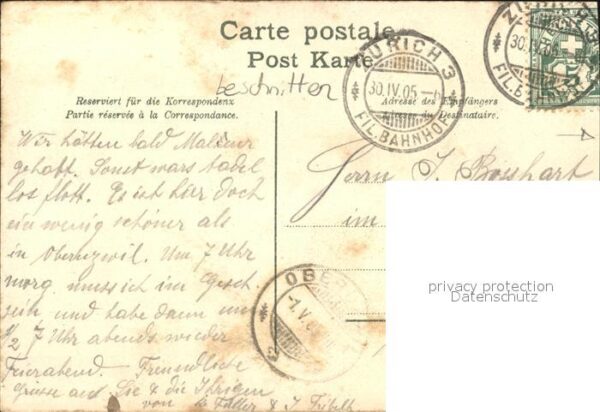 Carte postale
Post Karte
beschnitten
ZÜRICH 3
30.IV.05-6
FIL. BAHNHOF
30.IV.05
Reserviert für die Korrespondenz
Partie réservée à la Correspondance.
Adresse des Empfängers
du Destinataire.
Wir hätten bald Malheur
gehabt. Sonst wars tadel
los flott. Es ist hier doch
ein wenig schöner als
in Oberuzwil. Um 7 Uhr
morg. muss ich im Gesch
sein, und habe dann um
1/2 7 Uhr abends wieder
Feierabend. Freundliche
Grüsse an Sie & die Ihrigen
von
Herrn J. Bosshart
im
OBER
-1.V.
privacy protection
Datenschutz